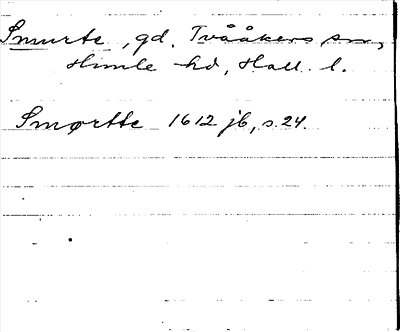 Smurte, gd. Tvååkers sn,
Himle hd, Hall. l.
Smørtte 1612 jb, s. 24.